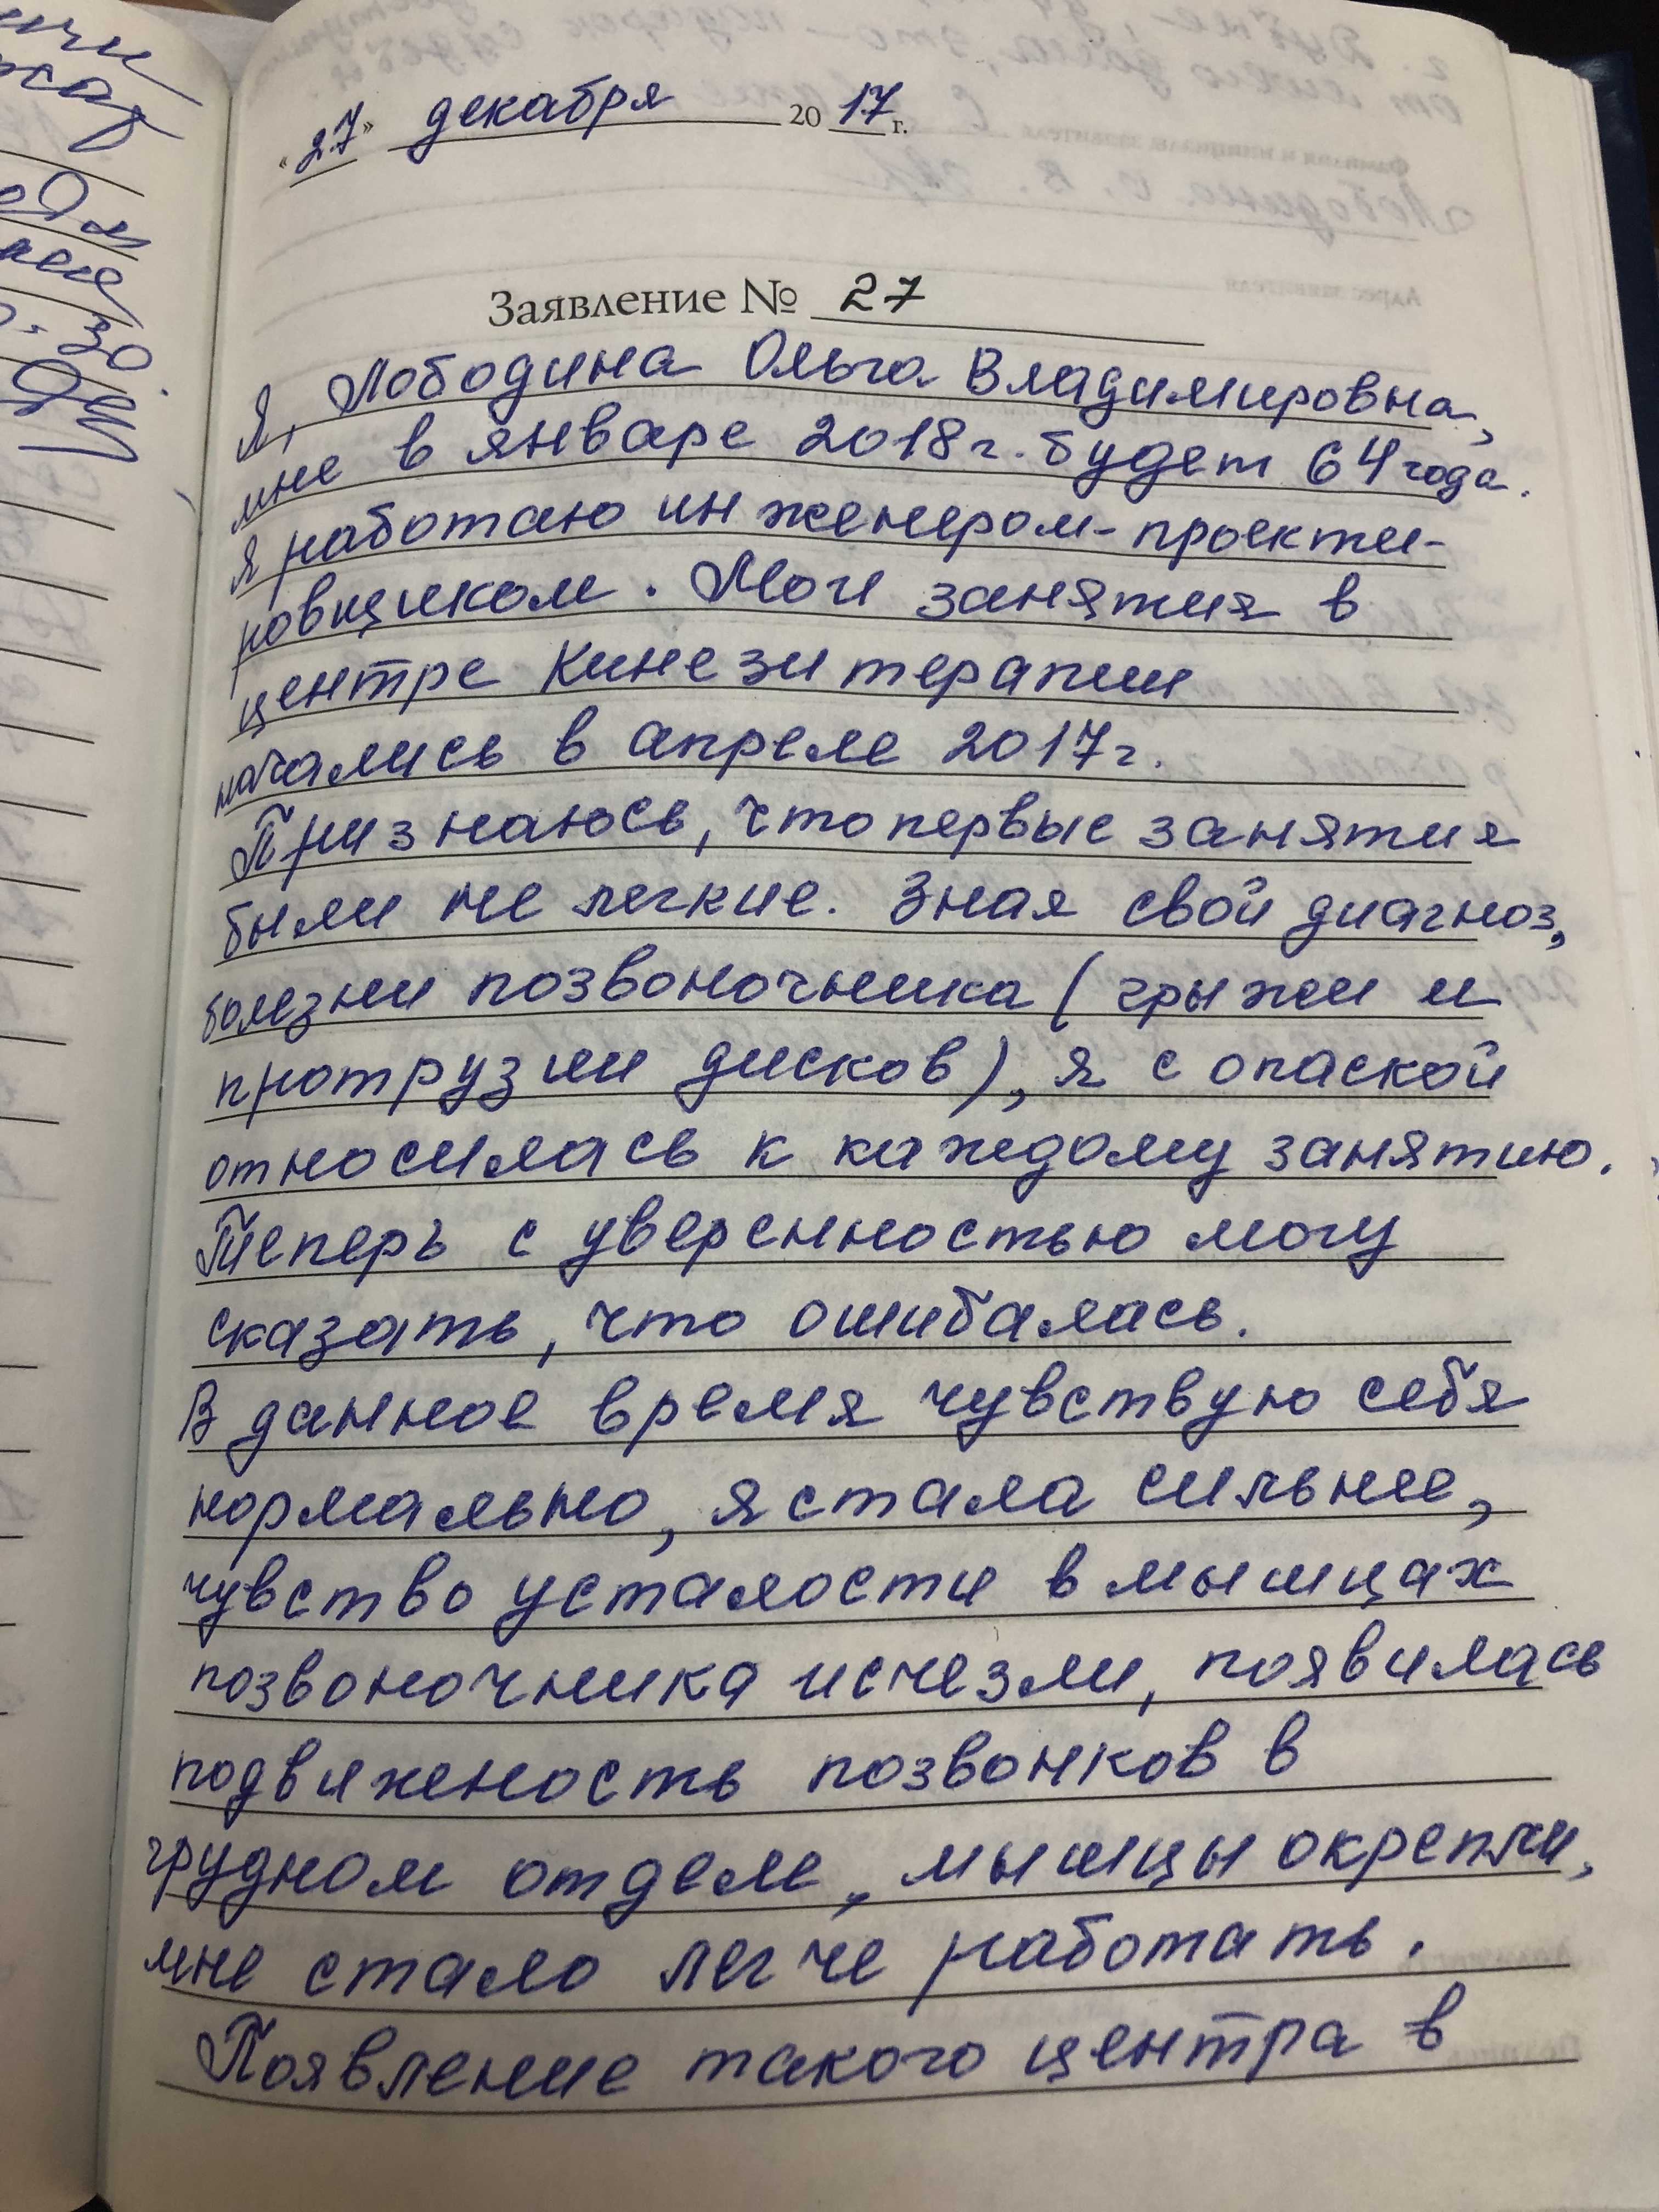 «27» декабря 2017 г.
Заявление № 27
Я, Лободина Ольга Владимировна,
мне в январе 2018г. будет 64 года.
Я работаю инженером-проекти-
ровщиком. Мои занятия в
центре Кинезитерапии
начались в апреле 2017г.
Признаюсь, что первые занятия
были не легкие. Зная свой диагноз,
болезни позвоночника (грыжи и
протрузии дисков), я с опаской
относилась к каждому занятию.
Теперь с уверенностью могу
сказать, что ошибалась.
В данное время чувствую себя
нормально, я стала сильнее,
чувство усталости в мышцах
позвоночника исчезли, появилась
подвиженость позвонков в
грудном отделе, мышцы окрепли,
мне стало легче работать.
Появление такого центра в